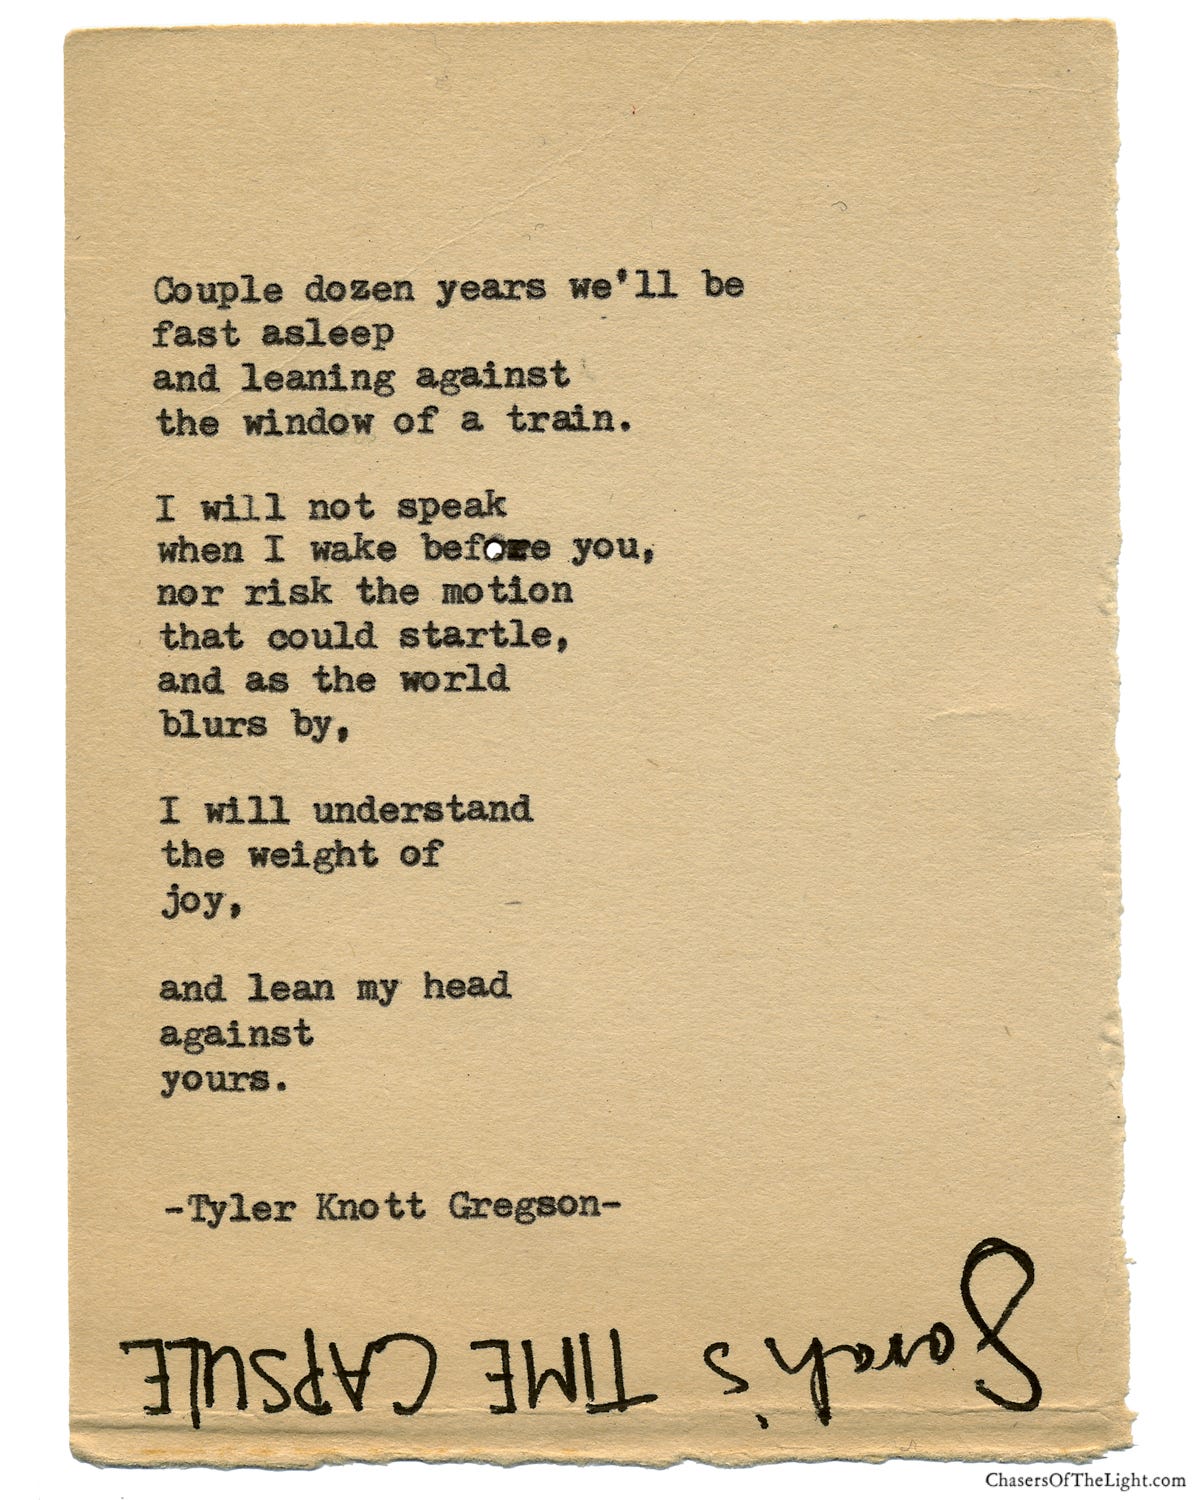 Couple dozen years we'll be
fast asleep
and leaning against
the window of a train.
I will not speak
when I wake before you,
nor risk the motion
that could startle,
and as the world
blurs by,
I will understand
the weight of
joy,
and lean my head
against
yours.
-Tyler Knott Gregson-
Sarah's TIME CAPSULE
ChasersOfTheLight.com